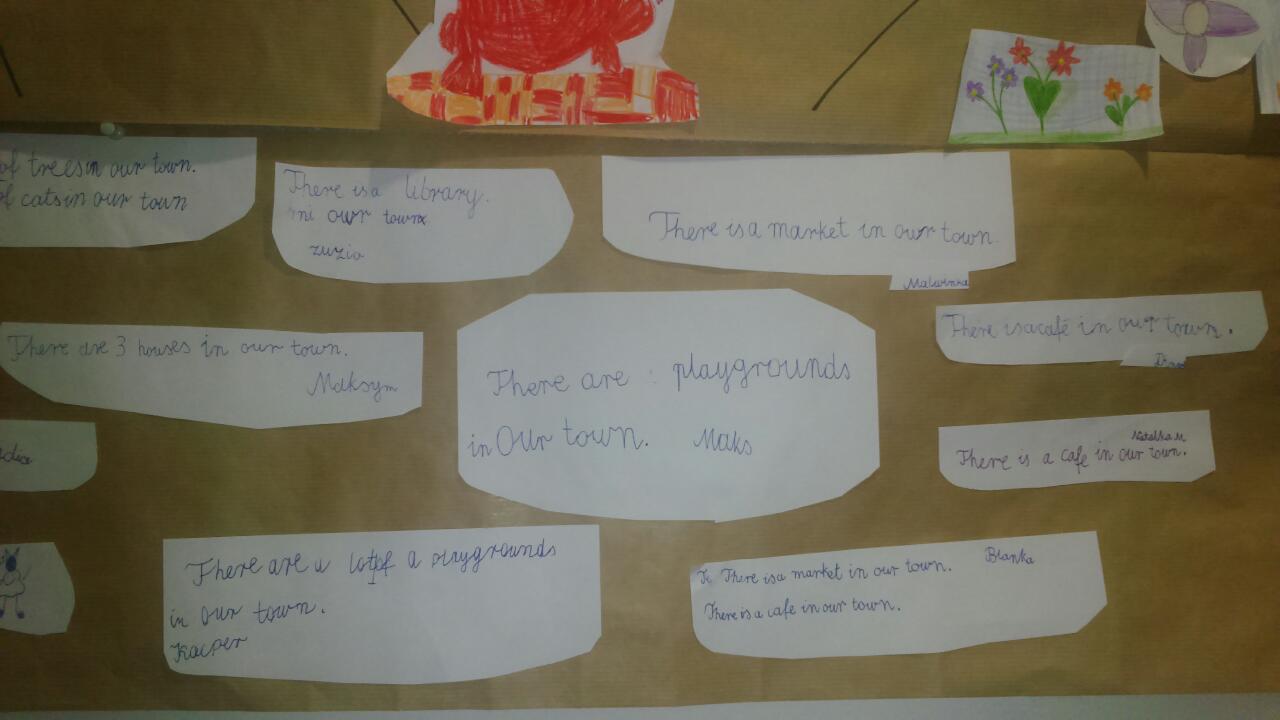 of trees in our town.
of cats in our town
There is a library.
ini our town
zuzia
There is a market in our town.
Malwinka
There are 3 houses in our town.
Maksym
There are playgrounds
in Our town. Maks
There is a café in our town.
Natalka M
There is a cafe in our town.
There are a lot of a playgrounds
in our town.
Kacper
There is a market in our town. Blanka
There is a cafe in our town.